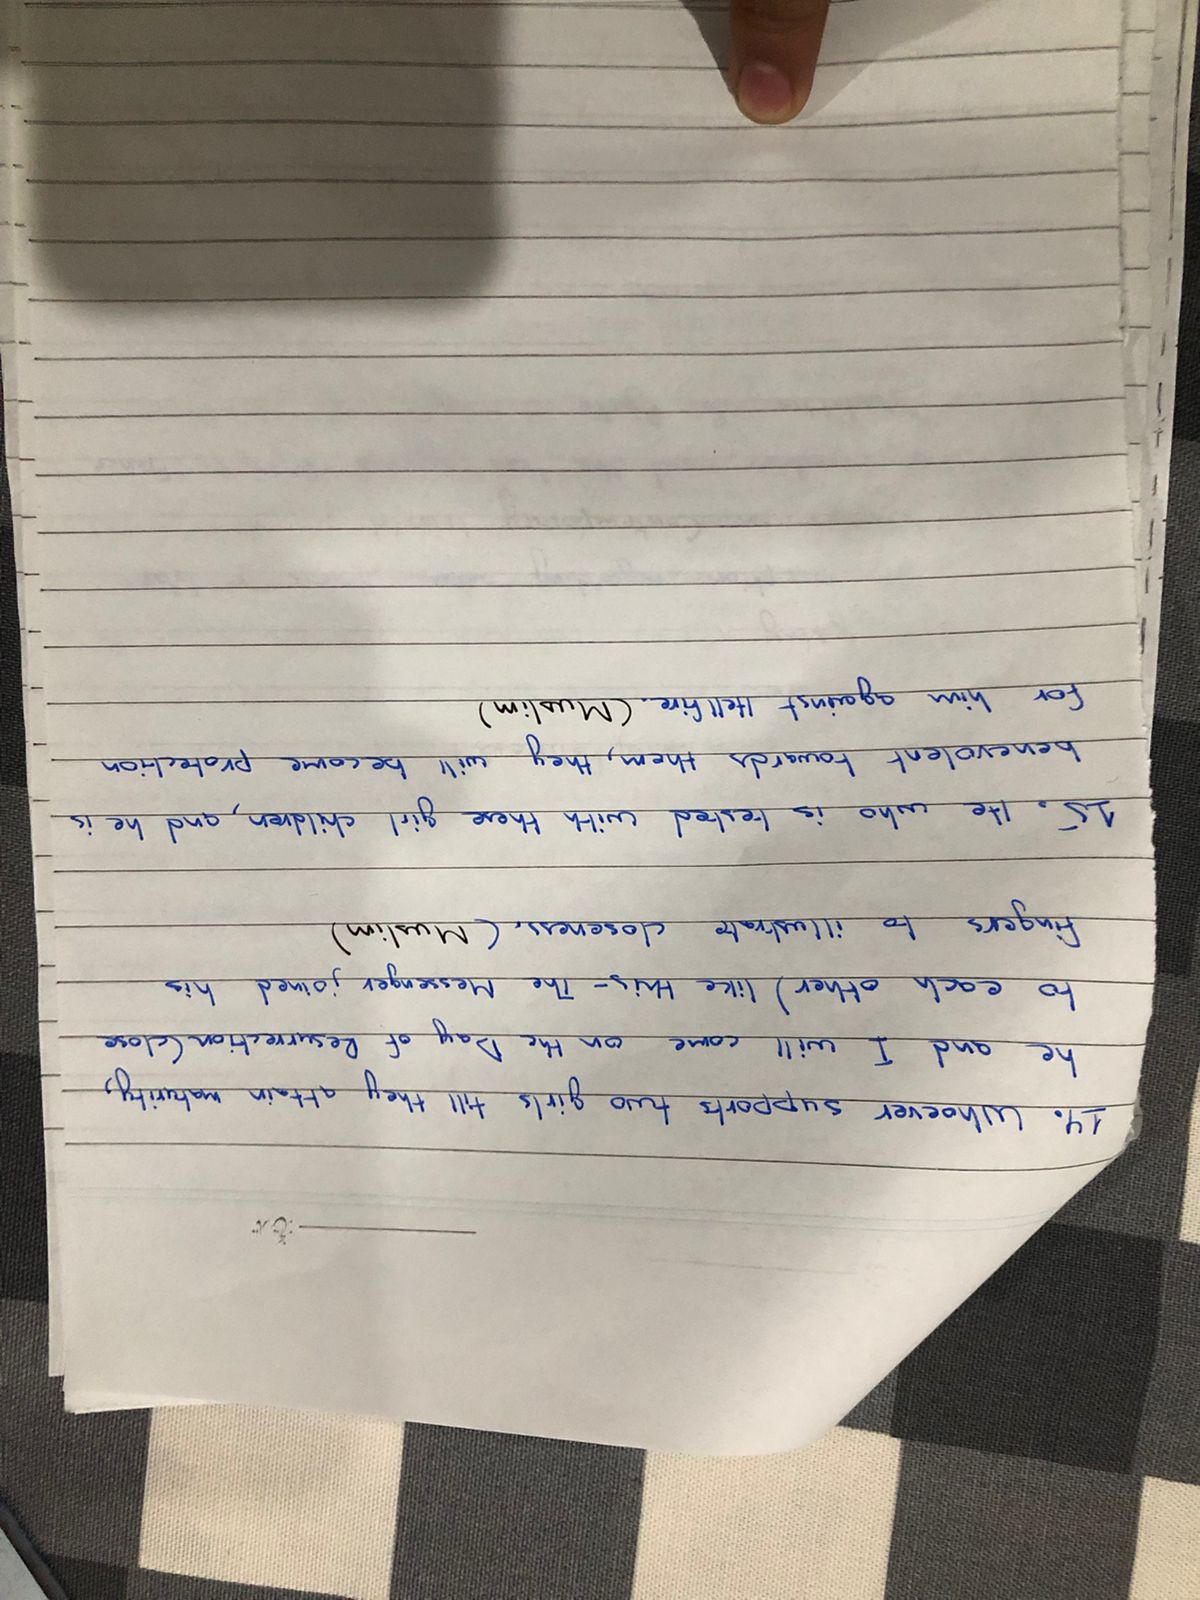 14. Whoever supports two girls till they attain maturity,
he and I will come on the Day of Resurrection (close
to each other) like this - The Messenger joined his
fingers to illustrate closeness. (Muslim)
15. He who is tested with these girl children, and he is
benevolent towards them, they will become protection
for him against Hellfire. (Muslim)